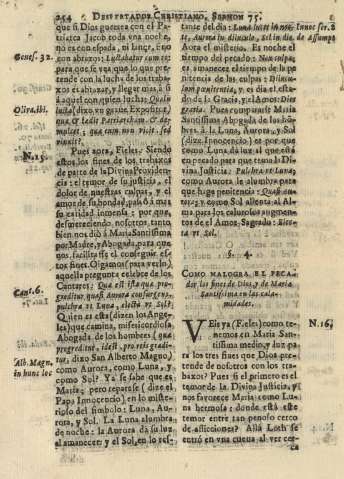 254 DESPERTADOR CHRISTIANO, SERMON 75.
que si Dios guerrea con el Patriarca
Jacob toda vna noche,
no es con espada, ni lança, sino
con abraços: Luctabatur cum eo:
para que se vea que lo que pretende
con la lucha de los trabaxos
es abraçar, y llegar mas à sì
à aquel con quien lucha: Qualis
lucta (dixo vn grave Expositor)
qua & lædit Patriarcham &
complectitur, qua eum non vicit, sed
vincit?
Pues aora, Fieles. Siendo
estos los fines de los trabaxos
de parte de la Divina Providencia:
el temor de su justicia, el
dolor de nuestras culpas, y el
amor de su bondad, passò à mas
su caridad inmensa: por que,
desmereciendo nosotros, tanto
bien nos diò à Maria Santissima
por Madre, y Abogada, para que
nos facilitasse el conseguir estos
fines. Oigamos (para verlo)
aquella pregunta celebre de los
Cantares: Quæ est ista quæ progreditur
quasi Aurora consurgens,
pulchra vt Luna, electa vt Sol?
Quien es esta (dizen los Angeles)
que camina, misericordiosa
Abogada de los hombres (quæ
progreditur, idest, pro reis graditur,
dixo San Alberto Magno)
como Aurora, como Luna, y
como Sol? Ya se sabe que es
Maria; pero reparese (dize el
Papa Innocencio) en lo misterioso
del simbolo: Luna, Aurora,
y Sol. La Luna alumbra
de noche: la Aurora da su luz
al amanecer: y el Sol, en lo
Genes. 32.
Oliva. ibi.
N. 15.
Cant. 6.
Alb. Magn.
in hunc loc
tante del dia: Luna lucet in nocte,
Aurora in diluculo, Sol in die.
Aora el misterio. Es noche el
tiempo del pecado: Nox culpa;
es amanecer el tiempo de la penitencia
de las culpas: Diluculum
pœnitentia, y es dia el estado
de la Gracia, y el Amor: Dies
gratia. Pues como siente Maria
Santissima Abogada de los hombres
à la Luna, Aurora, y Sol
(dize Innocencio) es por que
como Luna dà luz al que està
en pecado para que tema la Divina
Justicia; Pulchra vt Luna;
como Aurora le alumbra para
que haga penitencia: Quasi aurora;
y como Sol alienta al Alma
para los calurosos augmentos
de el Amor Sagrado: Electa
vt Sol.
§. 4.
COMO MALOGRA EL PECADOR
los fines de Dios, y de Maria
Santissima en las calamidades.
VEis ya (Fieles) como tenemos
en Maria Santissima
medio, y luz para
los tres fines que Dios pretende
de nosotros con los trabaxos?
Pues si el primero es el
temor de la Divina Justicia, y
nos favorece Maria como Luna
hermosa: donde està este
temor entre tan penoso cerco
de aflicciones? Allà Loth se
entrò en vna cueva al ver cerca
Innoc. ser. 2
de assumpt
N. 16.